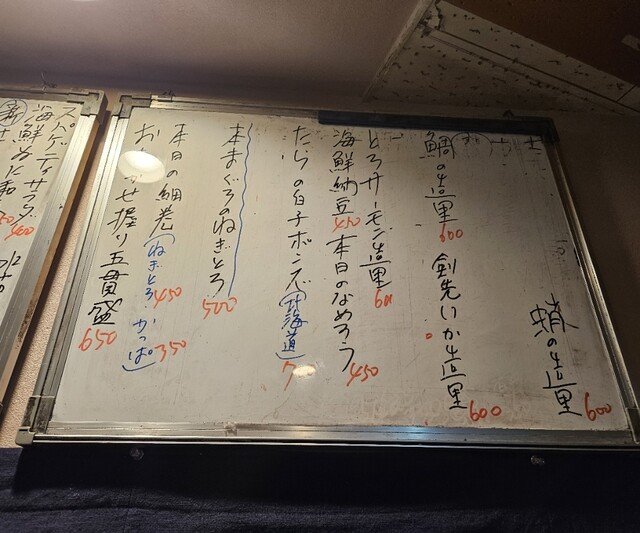 蛸の造里 600
鯛の造里 600 剣先いか造里 600
とろサーモン造里 600
海鮮納豆 450 本日のなめろう 450
たらの白子ポンズ(北海道) 7
本まぐろのねぎとろ 500
本日の細巻(ねぎとろ450 かっぱ350)
おまかせ握り五貫盛 650
スパゲティサラダ 400